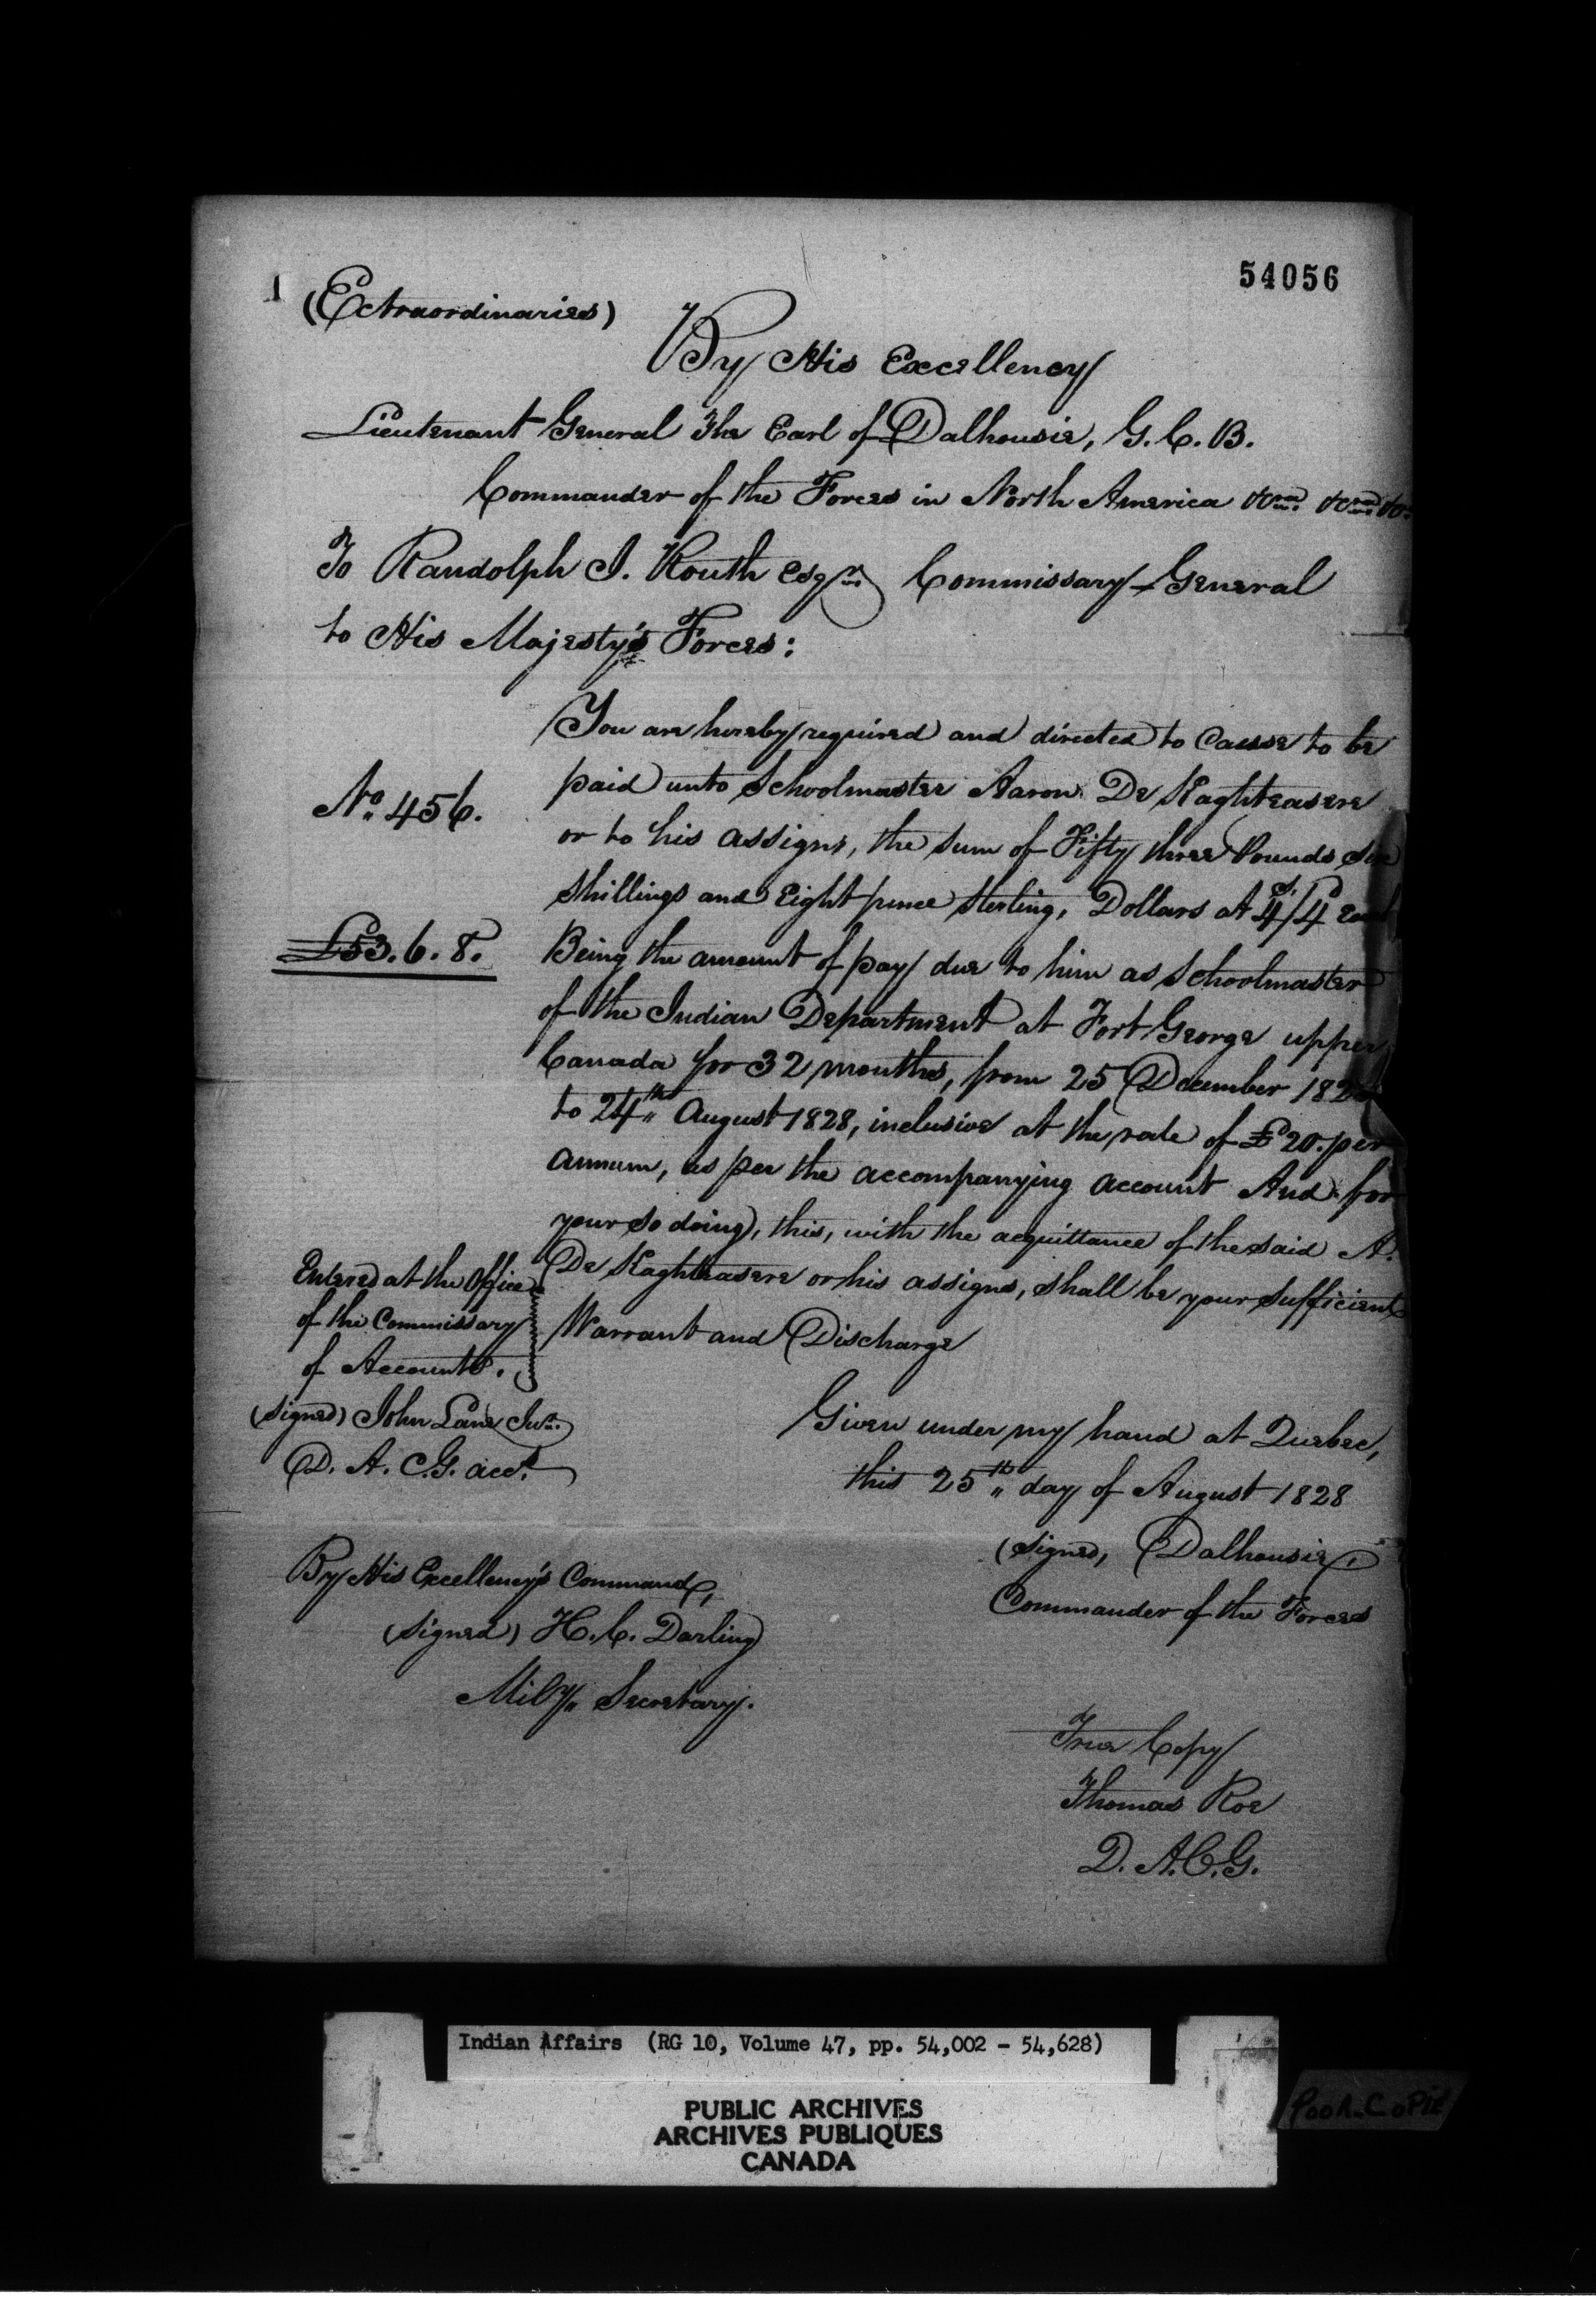 54056
1
(Extraordinaries)
By His Excellency
Lieutenant General The Earl of Dalhousie, G. C. B.
Commander of the Forces in North America &c. &c. &c.
To Randolph I. Routh Esqre. Commissary-General
to His Majesty's Forces:
You are hereby required and directed to cause to be
paid unto Schoolmaster Aaron De Kaghteasere
No. 456.
or to his assigns, the sum of Fifty three Pounds Six
shillings and Eight pence Sterling, Dollars at 4/4 each
£53. 6. 8.
Being the amount of pay due to him as Schoolmaster
of the Indian Department at Fort George upper
Canada for 32 months, from 25 December 182
to 24th August 1828, inclusive at the rate of £20. per
annum, as per the accompanying account And for
your so doing, this, with the acquittance of the said A.
De Kaghteasere or his assigns, shall be your sufficient
Warrant and Discharge
Entered at the Office
of the Commissary
of Accounts.
(signed) John Lane Junr.
D. A. C. G. acct.
Given under my hand at Quebec,
this 25th day of August 1828
(signed, Dalhousie
Commander of the Forces
By His Excellency's Command,
(signed) H. C. Darling
Mily. Secretary.
True Copy
Thomas Roe
D. A. C. G.
Indian Affairs (RG 10, Volume 47, pp. 54,002 - 54,628)
PUBLIC ARCHIVES
ARCHIVES PUBLIQUES
CANADA
POOR COPIE